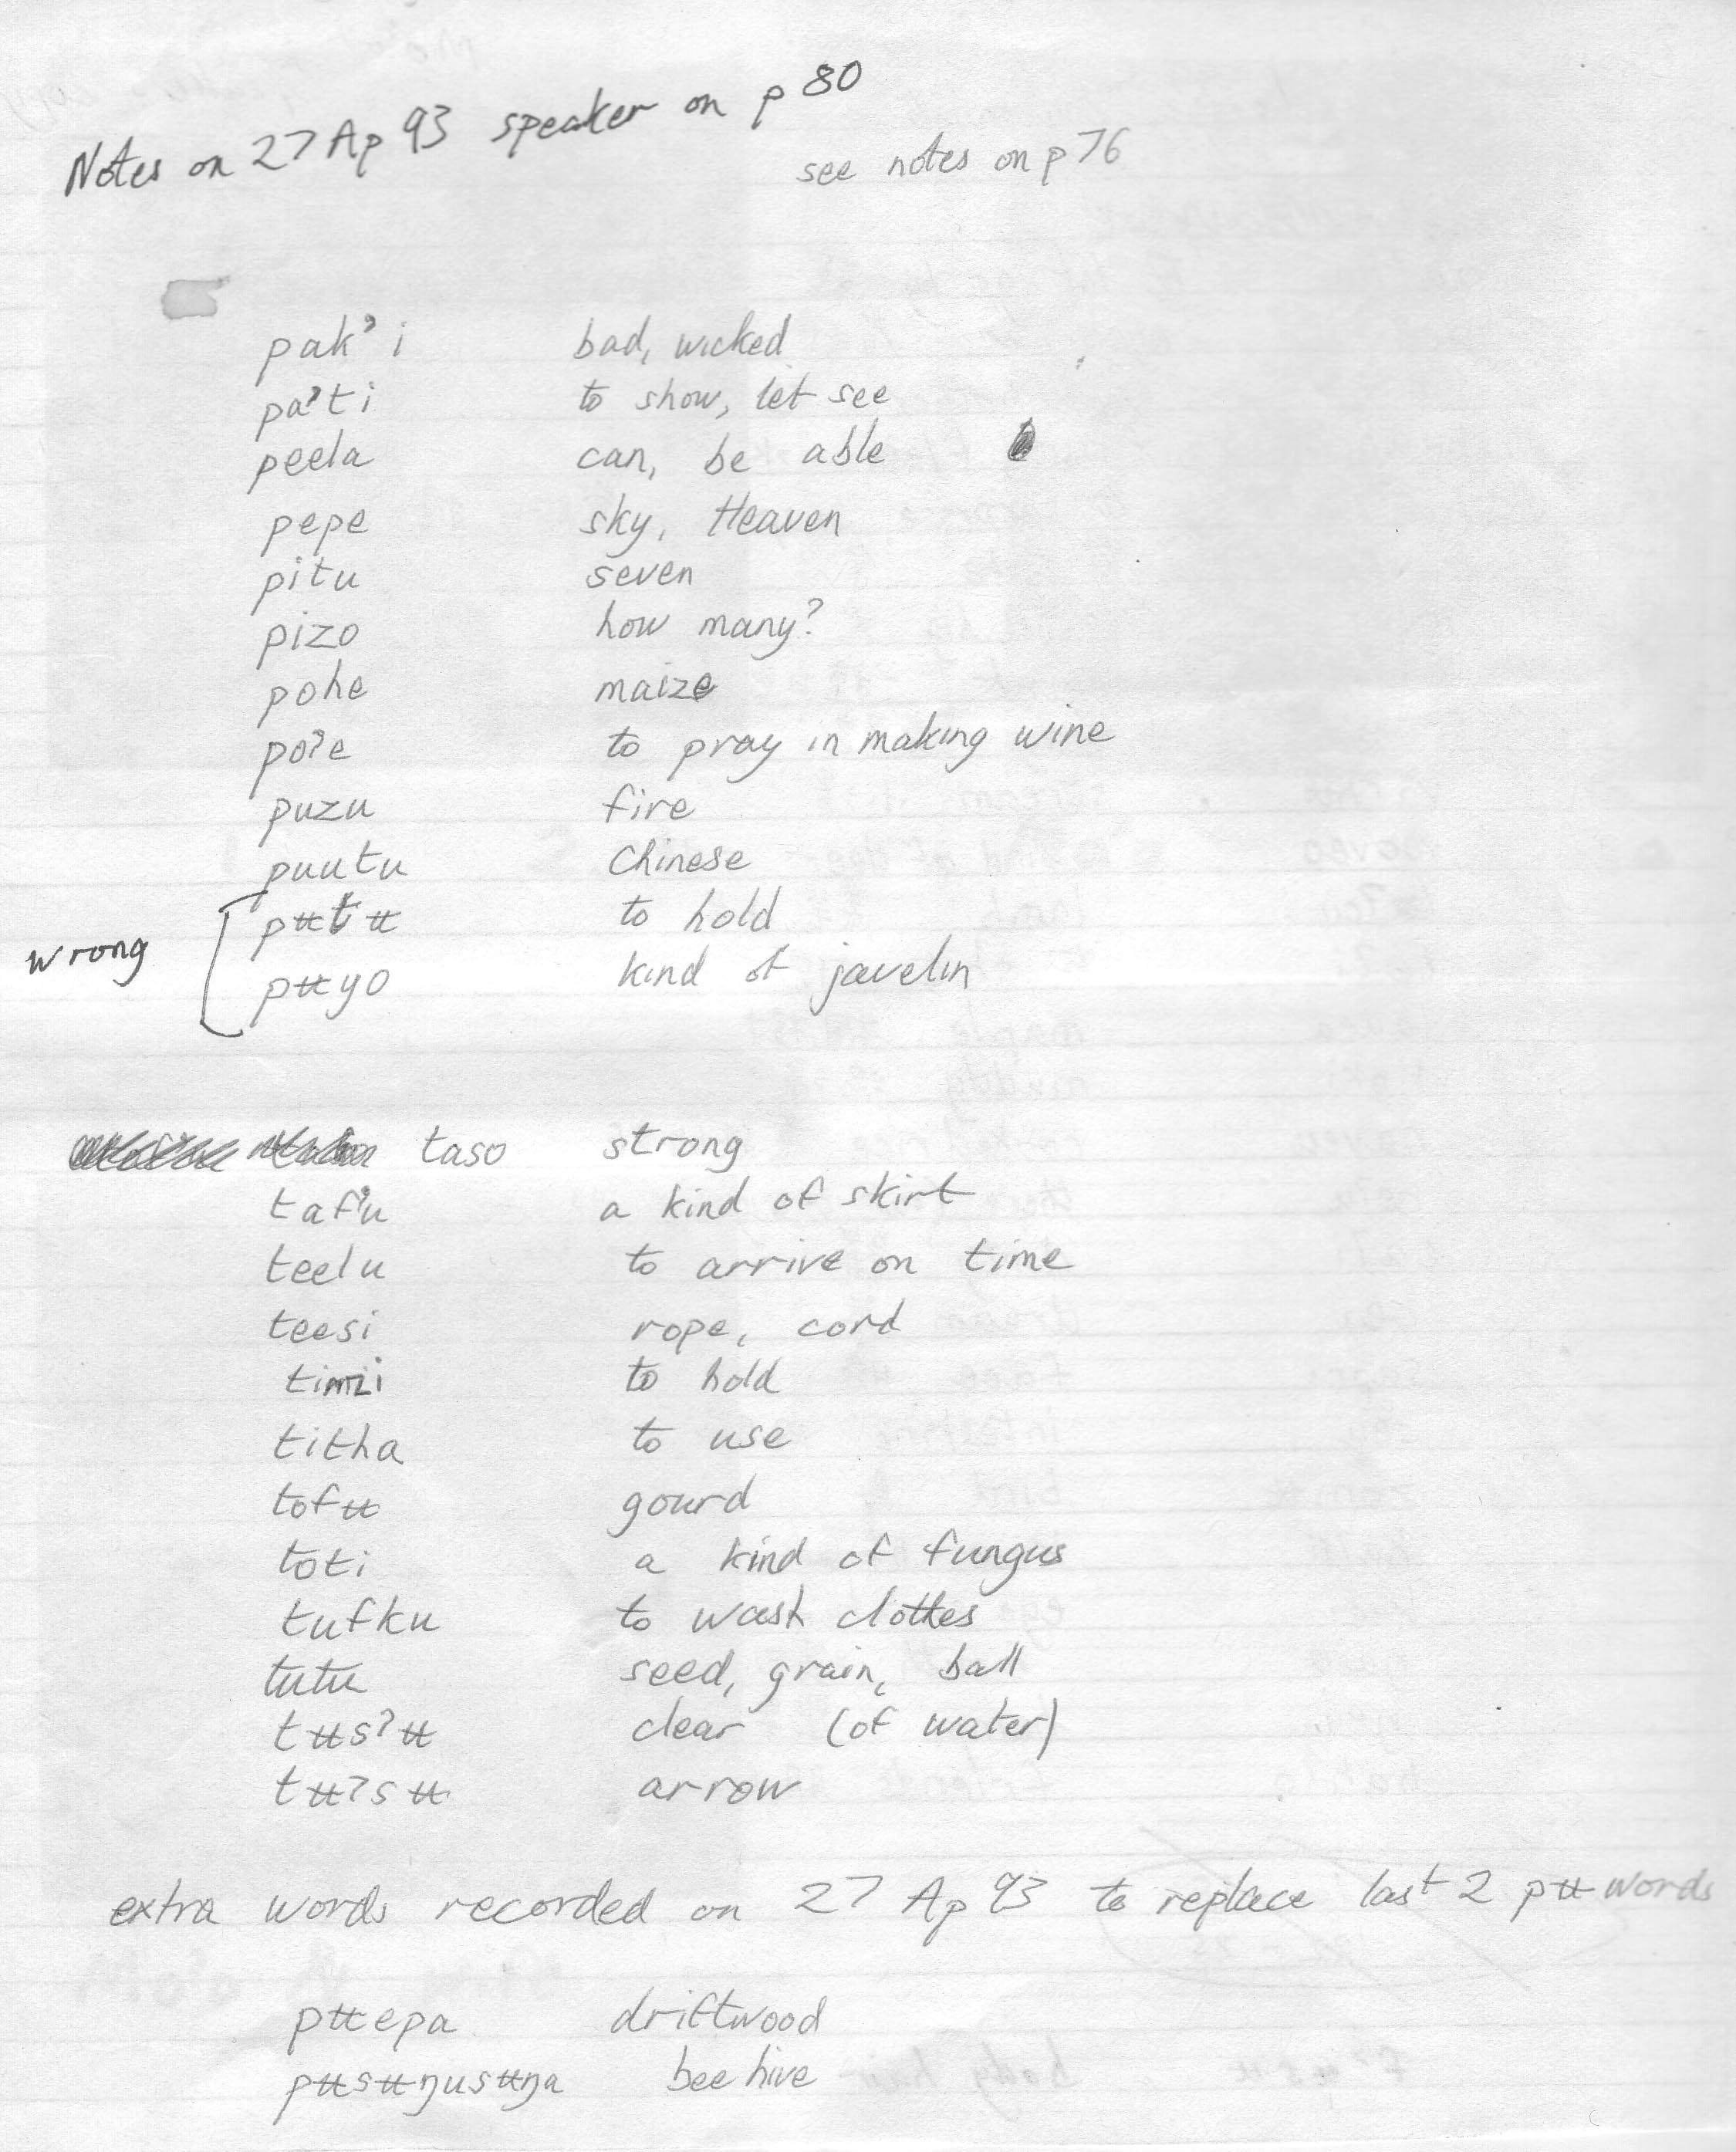 Notes on 27 Ap 93 speaker on p 80
see notes on p 76
pakʔi bad, wicked
paʔti to show, let see
peela can, be able
pepe sky, Heaven
pitu seven
pizo how many?
pohe maize
poʔe to pray in making wine
puzu fire
puutu Chinese
pʉtʉ to hold
wrong
pʉyo kind of javelin
taso strong
tafʔu a kind of skirt
teelu to arrive on time
teesi rope, cord
to hold
titha to use
tofʉ gourd
toti a kind of fungus
tufku to wash clothes
tutu seed, grain, ball
tʉsʔʉ clear (of water)
tʉʔsʉ arrow
extra words recorded on 27 Ap 93 to replace last 2 pʉ words
pʉepa driftwood
pʉsʉŋusʉŋa bee hive